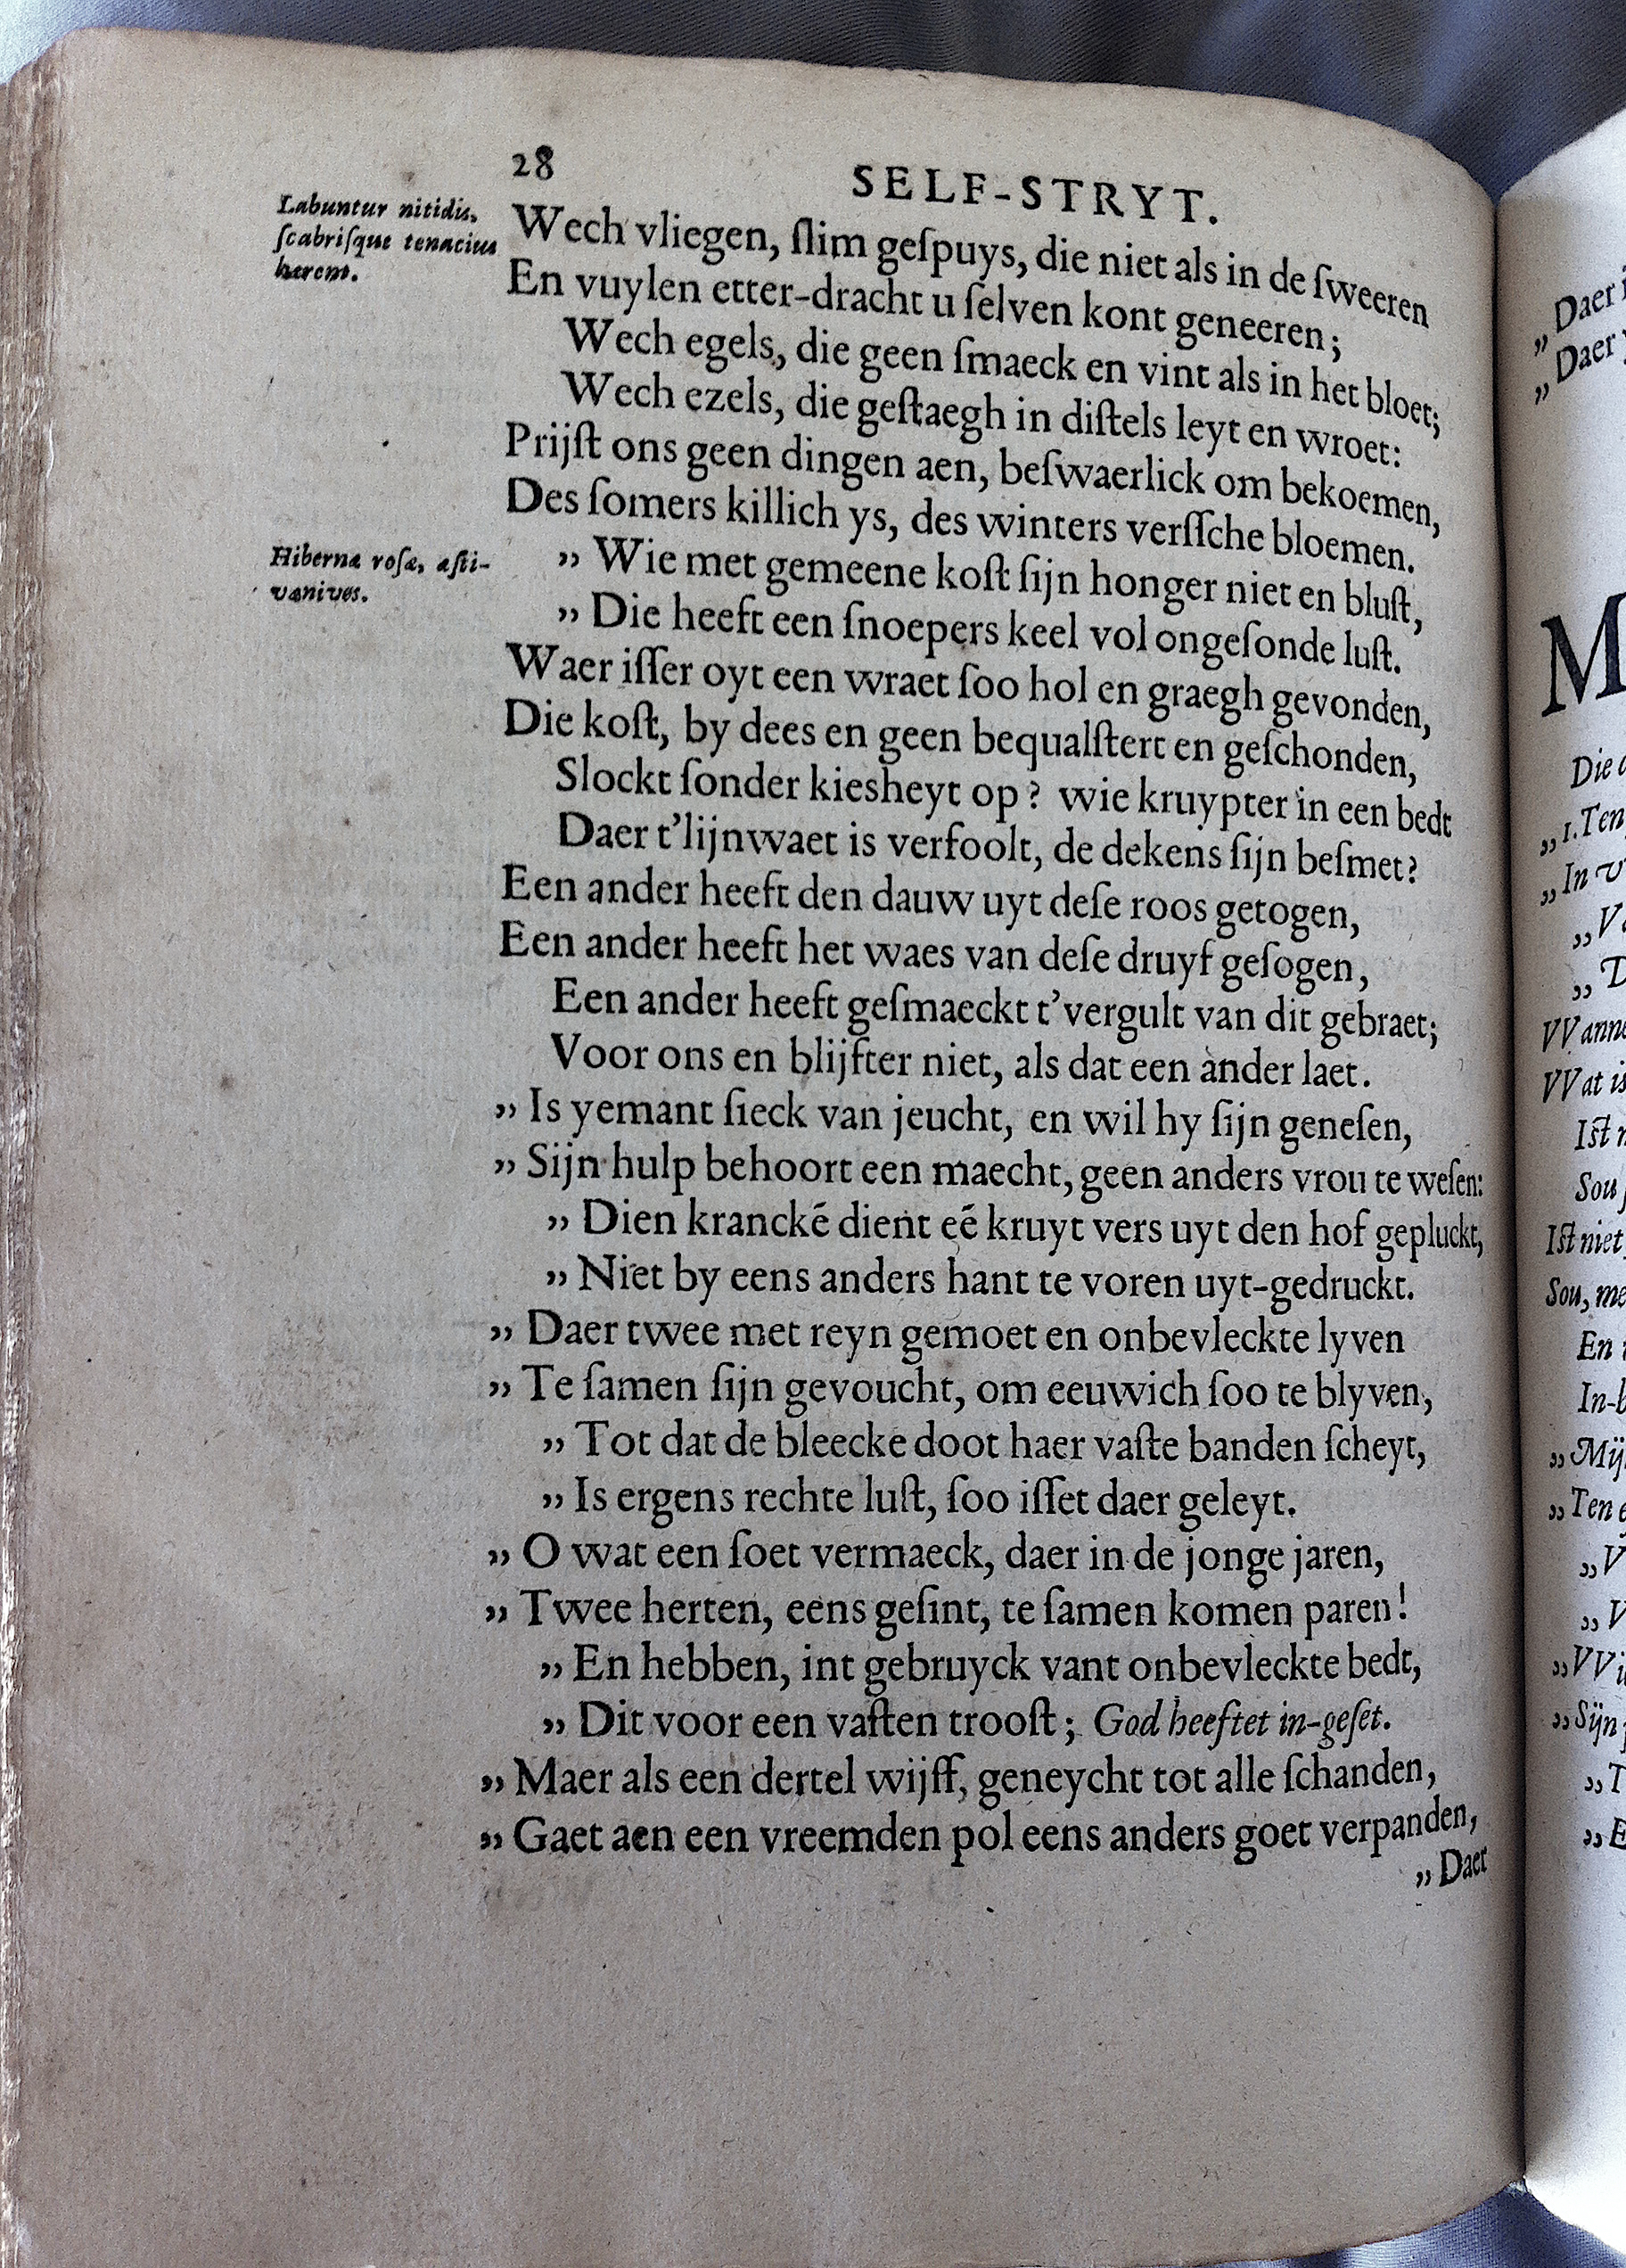 28
SELF-STRYT.
Labuntur nitidis,
ſcabriſque tenacius
herent.
Wech vliegen, ſlim geſpuys, die niet als in de ſweeren
En vuylen etter-dracht u ſelven kont geneeren;
Wech egels, die geen ſmaeck en vint als in het bloet;
Wech ezels, die geſtaegh in diſtels leyt en wroet:
Prijſt ons geen dingen aen, beſwaerlick om bekoemen,
Des ſomers killich ys, des winters verſſche bloemen.
Hibernæ roſæ, æſti-
væ nives.
„ Wie met gemeene koſt ſijn honger niet en bluſt,
„ Die heeft een ſnoepers keel vol ongeſonde luſt.
Waer iſſer oyt een wraet ſoo hol en graegh gevonden,
Die koſt, by dees en geen bequalſtert en geſchonden,
Slockt ſonder kiesheyt op? wie kruypter in een bedt
Daer t'lijnwaet is verfoolt, de dekens ſijn beſmet?
Een ander heeft den dauw uyt deſe roos getogen,
Een ander heeft het waes van deſe druyf geſogen,
Een ander heeft geſmaeckt t'vergult van dit gebraet;
Voor ons en blijfter niet, als dat een ander laet.
„ Is yemant ſieck van jeucht, en wil hy ſijn geneſen,
„ Sijn hulp behoort een maecht, geen anders vrou te weſen:
„ Dien kranckē dient eē kruyt vers uyt den hof gepluckt,
„ Niet by eens anders hant te voren uyt-gedruckt.
„ Daer twee met reyn gemoet en onbevleckte lyven
„ Te ſamen ſijn gevoucht, om eeuwich ſoo te blyven,
„ Tot dat de bleecke doot haer vaſte banden ſcheyt,
„ Is ergens rechte luſt, ſoo iſſet daer geleyt.
„ O wat een ſoet vermaeck, daer in de jonge jaren,
„ Twee herten, eens geſint, te ſamen komen paren!
„ En hebben, int gebruyck vant onbevleckte bedt,
„ Dit voor een vaſten trooſt; God heeftet in-geſet.
„ Maer als een dertel wijff, geneycht tot alle ſchanden,
„ Gaet aen een vreemden pol eens anders goet verpanden,
„ Daer
„ Daer
„ Daer
M
Die
„ 1. Ten
„ In
„
„
VVann
VVat is
Iſt
Sou
Iſt niet
Sou, me
En
In-b
„ Mij
„ Ten
„ V
„ V
„ VVi
„ Sijn
„ T
„ E